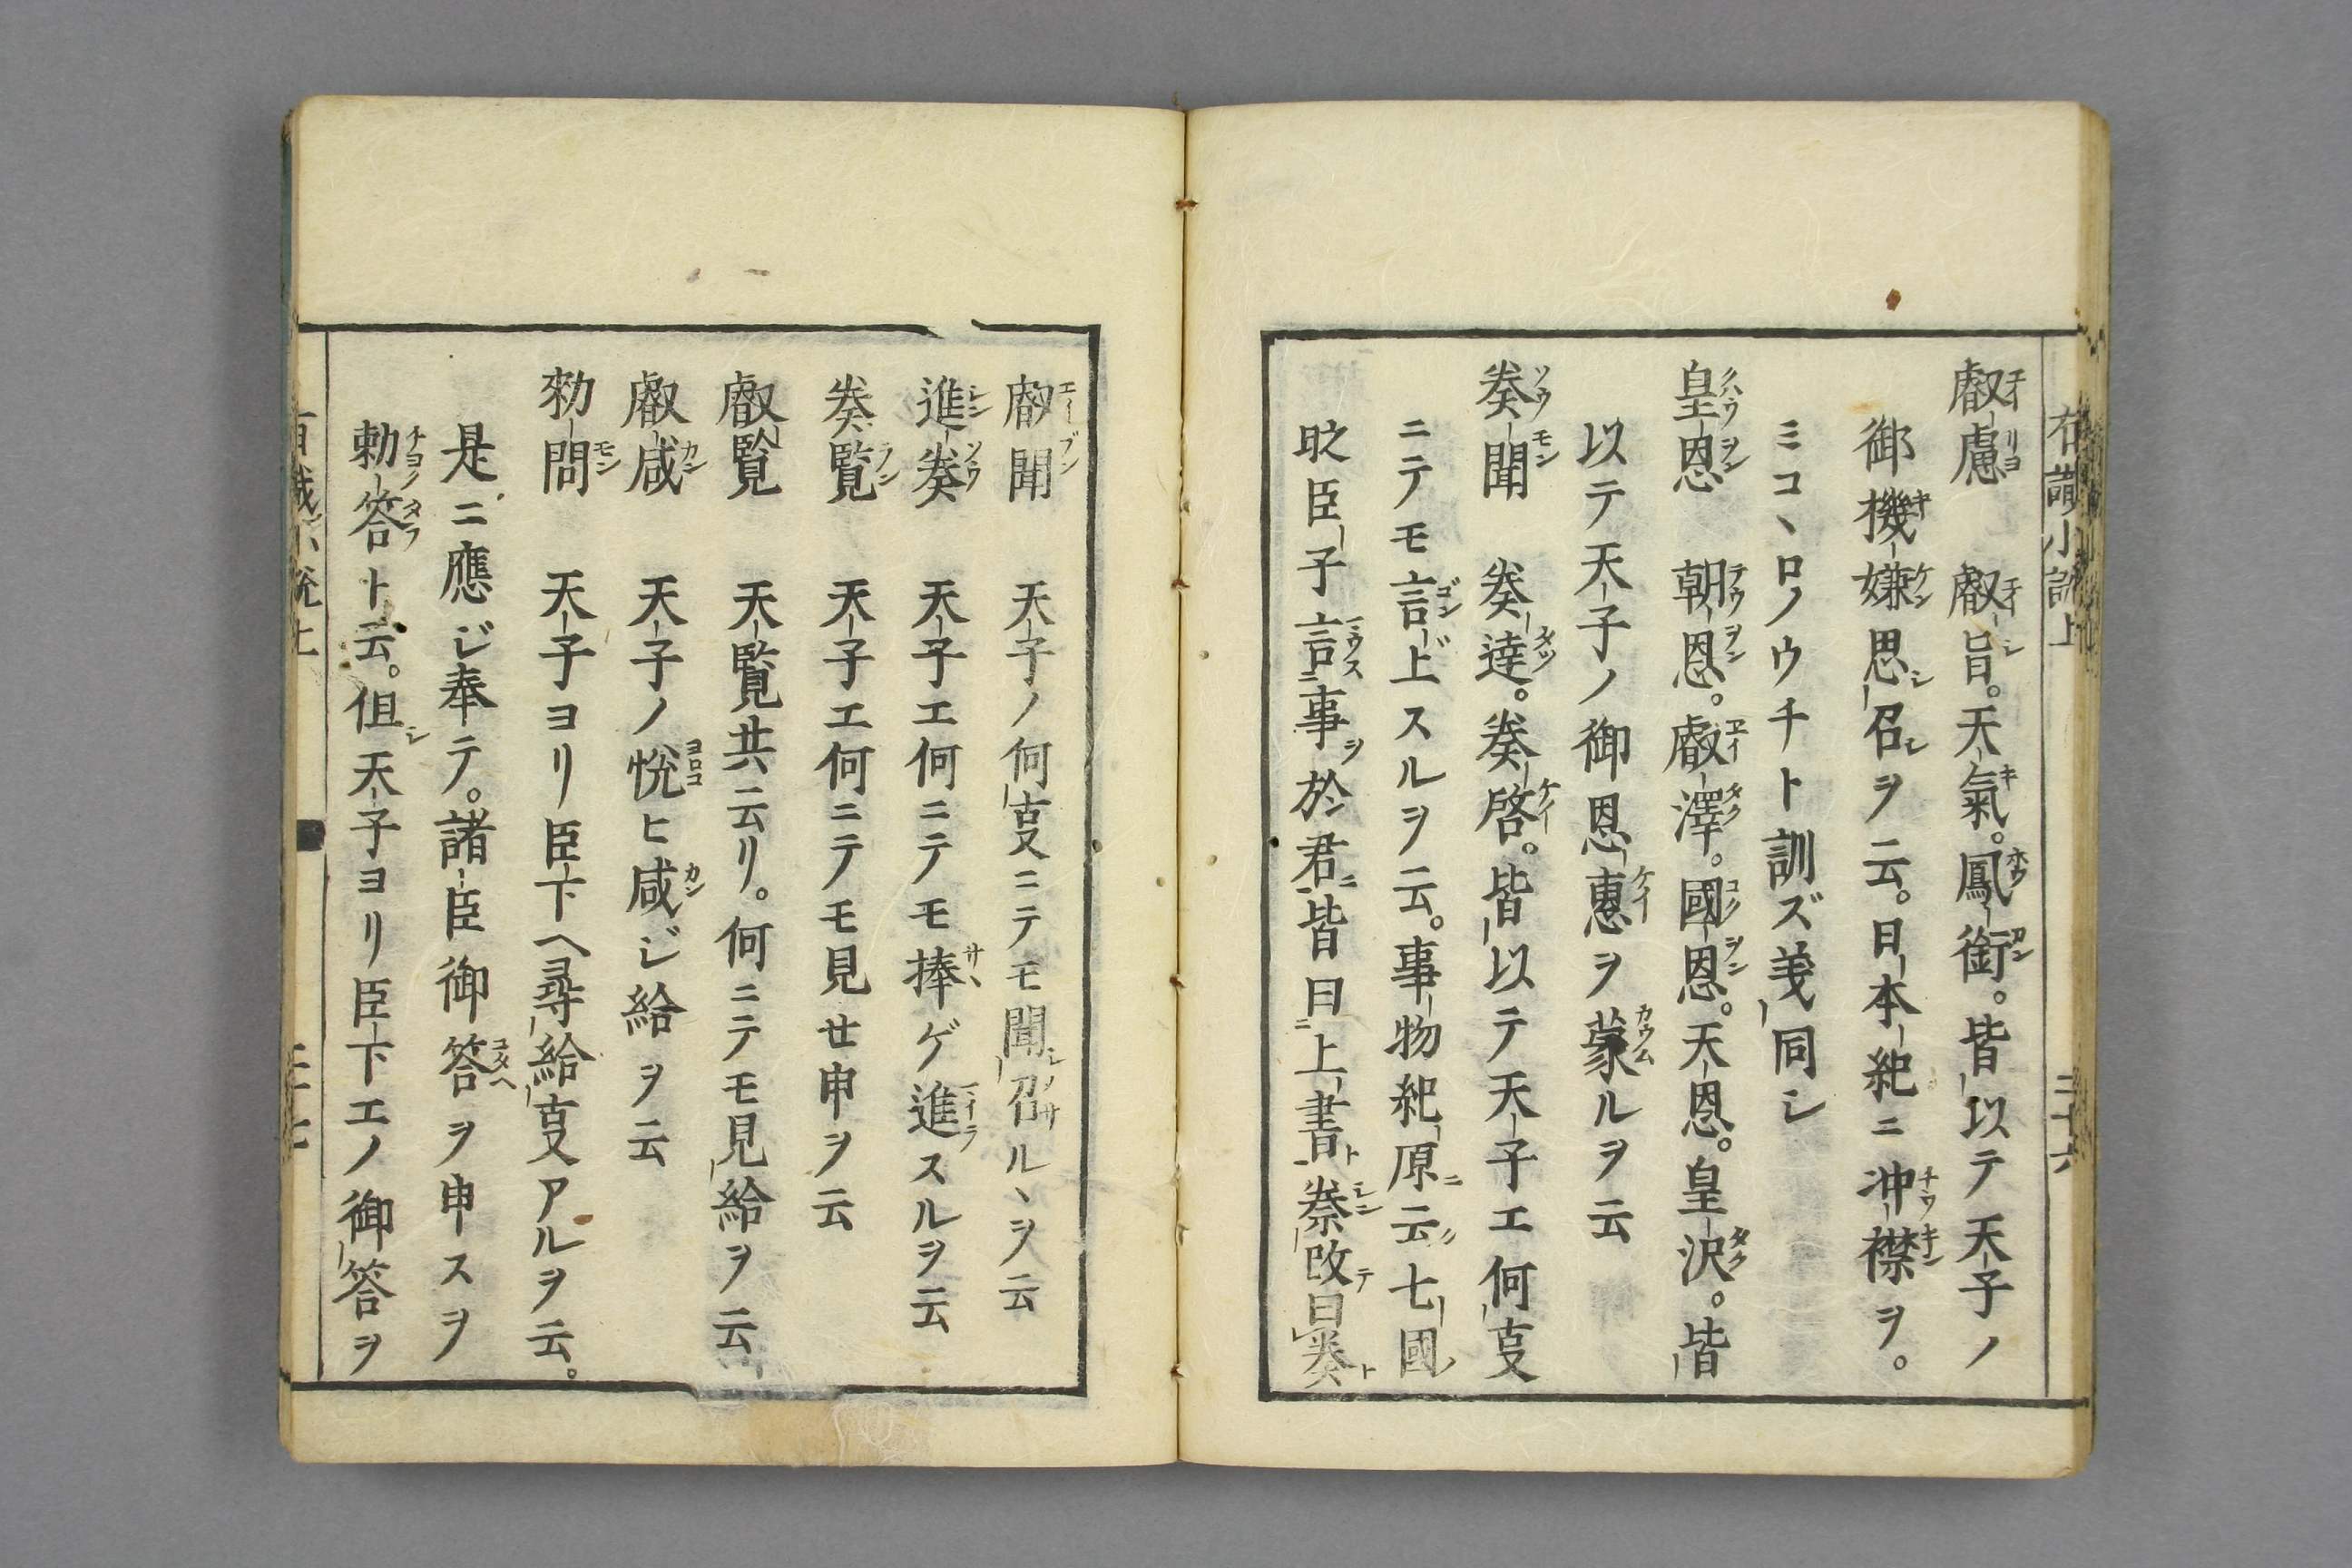 叡慮　叡旨。天氣。鳳銜。皆以テ天子ノ
御機嫌思召ヲ云。日本紀ニ冲襟ヲ。
ミコヽロノウチト訓ズ義同シ
皇恩　朝恩。叡澤。國恩。天恩。皇沢。皆
以テ天子ノ御恩惠ヲ蒙ルヲ云
奏聞　奏達。奏啓。皆以テ天子エ何叓
ニテモ言上スルヲ云。事物紀原ニ云七國ノ
時臣子言事ヲ於君皆曰上書ト秦改テ曰奏ト
叡聞　天子ノ何叓ニテモ聞召ルヽヲ云
進奏　天子エ何ニテモ捧ゲ進スルヲ云
奏覧　天子エ何ニテモ見せ申ヲ云
叡覧　天覧共云リ。何ニテモ見給ヲ云
叡感　天子ノ悦ヒ感ジ給ヲ云
勅問　天子ヨリ臣下ヘ尋給叓アルヲ云。
是ニ應ジ奉テ。諸臣御答ヲ申スヲ
勅答ト云。但天子ヨリ臣下エノ御答ヲ